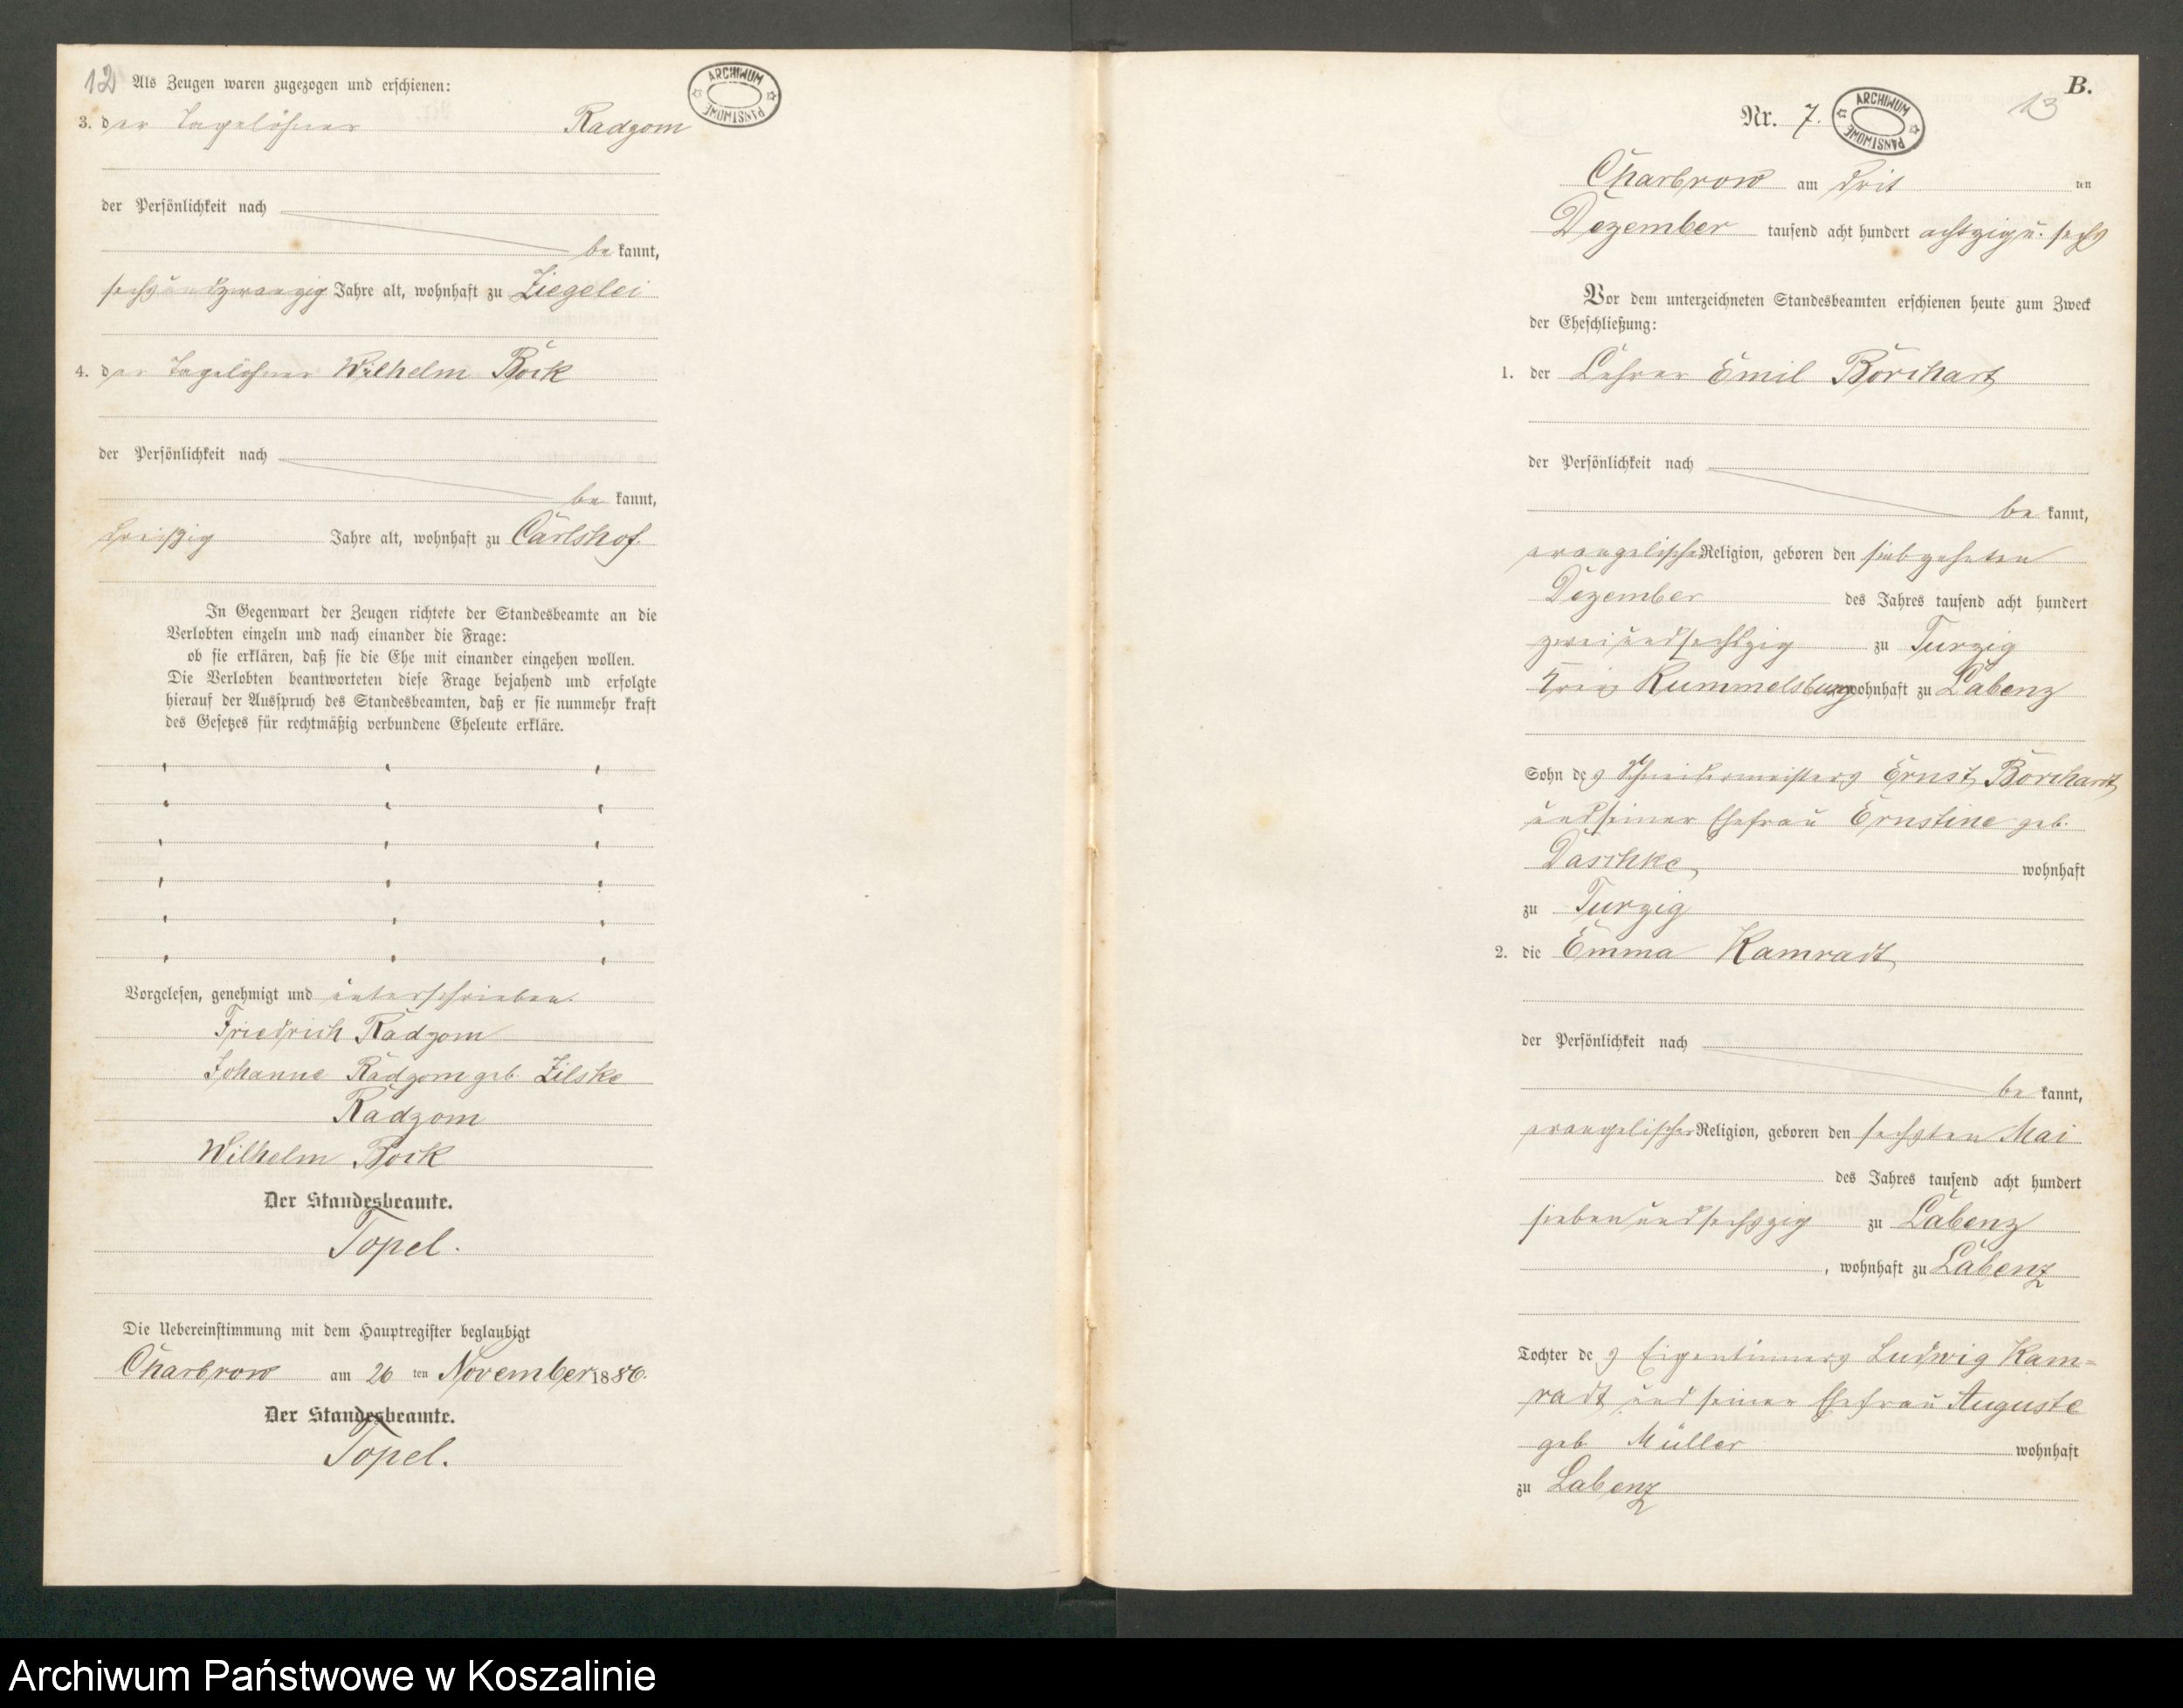 12
Als Zeugen waren zugezogen und erschienen:
ARCHIWUM PAŃSTWOWE
3. der Tagelöhner Radzom
der Persönlichkeit nach
be kannt,
sechsundzwanzig Jahre alt, wohnhaft zu Ziegelei
4. der Tagelöhner Wilhelm Bock
der Persönlichkeit nach
be kannt,
dreißig Jahre alt, wohnhaft zu Carlshof.
In Gegenwart der Zeugen richtete der Standesbeamte an die
Verlobten einzeln und nach einander die Frage:
ob sie erklären, daß sie die Ehe mit einander eingehen wollen.
Die Verlobten beantworteten diese Frage bejahend und erfolgte
hierauf der Ausspruch des Standesbeamten, daß er sie nunmehr kraft
des Gesetzes für rechtmäßig verbundene Eheleute erkläre.
Vorgelesen, genehmigt und unterschrieben.
Friedrich Radzom
Johanne Radzom geb. Zilske
Radzom
Wilhelm Bock
Der Standesbeamte.
Topel.
Die Uebereinstimmung mit dem Hauptregister beglaubigt
Charbrow am 26 ten November 1886.
Der Standesbeamte.
Topel.
B.
13
Nr. 7.
ARCHIWUM PAŃSTWOWE
Charbrow am drit ten
Dezember tausend acht hundert achtzig u. sechs
Vor dem unterzeichneten Standesbeamten erschienen heute zum Zweck
der Eheschließung:
1. der Lehrer Emil Borchart
der Persönlichkeit nach
be kannt,
evangelischer Religion, geboren den siebzehnten
Dezember des Jahres tausend acht hundert
zweiundsechszig zu Turzig
Kreis Rummelsburg wohnhaft zu Labenz
Sohn des Schneidermeisters Ernst Borchardt
und seiner Ehefrau Ernstine geb.
Daschke, wohnhaft
zu Turzig
2. die Emma Kamradt
der Persönlichkeit nach
be kannt,
evangelischer Religion, geboren den sechsten Mai
des Jahres tausend acht hundert
siebenundsechszig zu Labenz
, wohnhaft zu Labenz
Tochter des Eigentümers Ludwig Kam=
radt und seiner Ehefrau Auguste
geb. Müller wohnhaft
zu Labenz
Archiwum Państwowe w Koszalinie